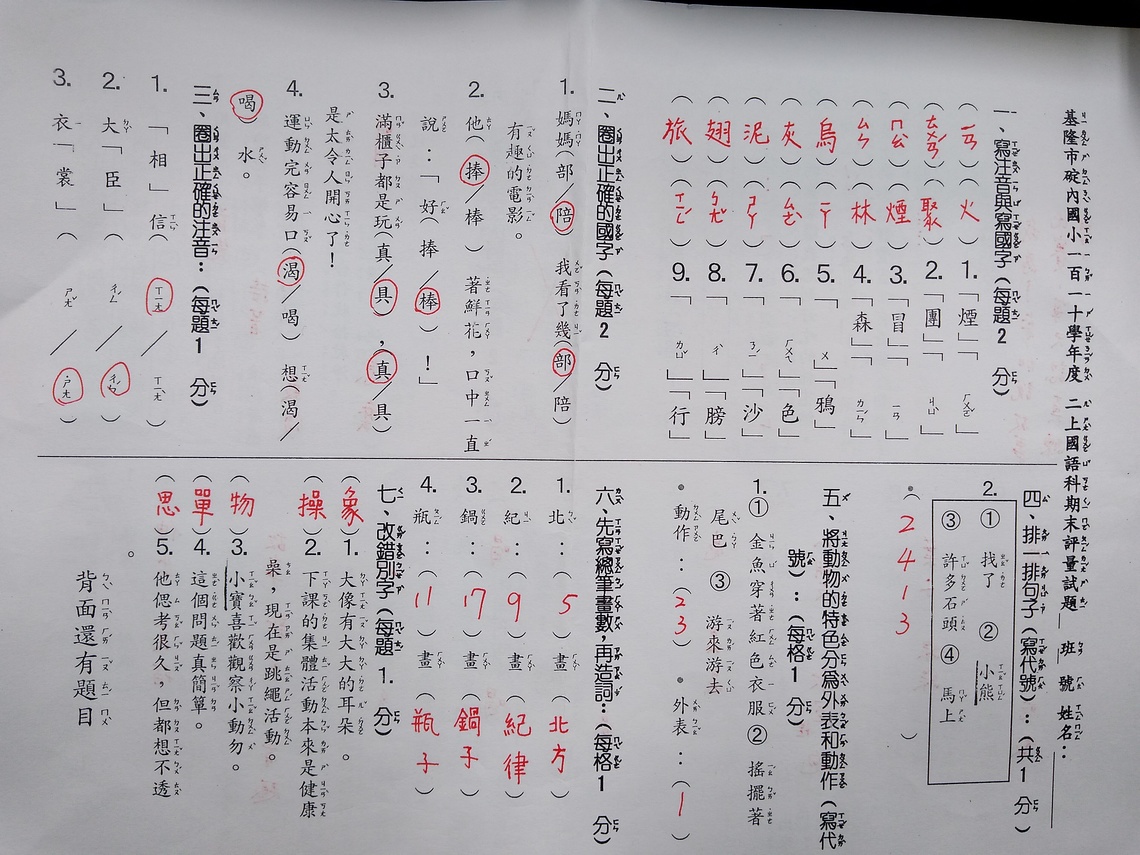 基隆市碇內國小一百一十學年度 二上國語科期末評量試題 班 號 姓名：
一、寫注音與寫國字（每題2分）
（ㄧㄢ）（火）1.「煙」「ㄏㄨㄛˇ」
（ㄊㄨㄢˊ）（聚）2.「團」「ㄐㄩˋ」
（ㄇㄠˋ）（煙）3.「冒」「ㄧㄢ」
（ㄙㄣ）（林）4.「森」「ㄌㄧㄣˊ」
（烏）（ㄧㄚ）5.「ㄨ」「鴉」
（灰）（ㄙㄜˋ）6.「ㄏㄨㄟ」「色」
（泥）（ㄕㄚ）7.「ㄋㄧˊ」「沙」
（翅）（ㄅㄤˇ）8.「ㄔˋ」「膀」
（旅）（ㄒㄧㄥˊ）9.「ㄌㄩˇ」「行」
二、圈出正確的國字（每題2分）
1. 媽媽（部／陪）我看了幾（部／陪）
有趣的電影。
2. 他（捧／棒）著鮮花，口中一直
說：「好（捧／棒）！」
3. 滿櫃子都是玩（真／具），真／具）
是太令人開心了！
4. 運動完容易口（渴／喝）想（渴／
喝）水。
三、圈出正確的注音：（每題1分）
1. 「相」信（ㄒㄧㄤ／ㄒㄧㄤˋ）
2. 大「臣」（ㄔㄥˊ／ㄔㄣˊ）
3. 衣「裳」（ㄕㄤˊ／˙ㄕㄤ）
四、排一排句子（寫代號）：（共1分）
2. ①找了 ②小熊
③許多石頭 ④馬上
（2413）
五、將動物的特色分為外表和動作（寫代
號）：（每格1分）
1. ①金魚穿著紅色衣服②搖擺著
尾巴 ③游來游去
•動作：（23）•外表：（1）
六、先寫總筆畫數，再造詞：（每格1分）
1. 北：（5）畫（北方）
2. 紀：（9）畫（紀律）
3. 鍋：（17）畫（鍋子）
4. 瓶：（11）畫（瓶子）
七、改錯別字（每題1.分）
（象）1. 大像有大大的耳朵。
（操）2. 下課的集體活動本來是健康
喿，現在是跳繩活動。
（物）3. 小寶喜歡觀察小動勿。
（單）4. 這個問題真簡簞。
（思）5. 他偲考很久，但都想不透
。
背面還有題目